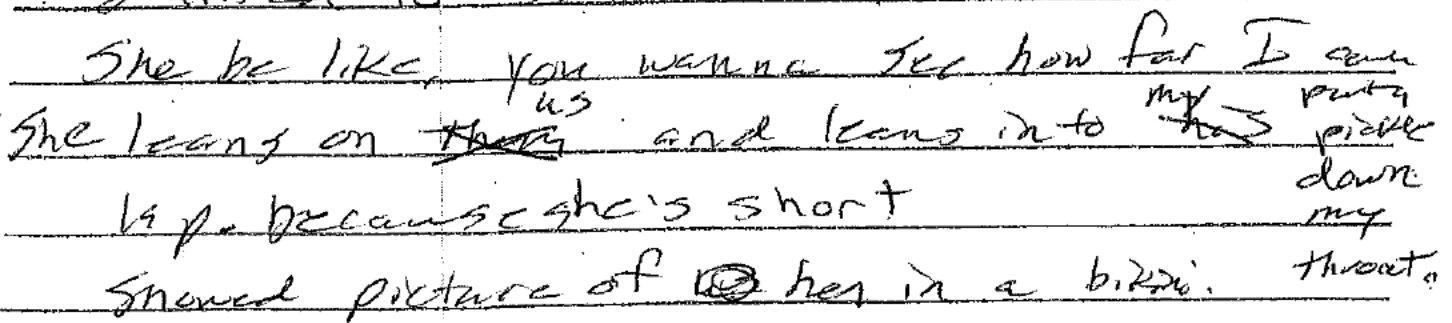 She be like, you wanna see how far I can
put a
pickle
down
my
throat.
She leans on us and leans into my
lap. because she's short
Showed picture of her in a bikini.